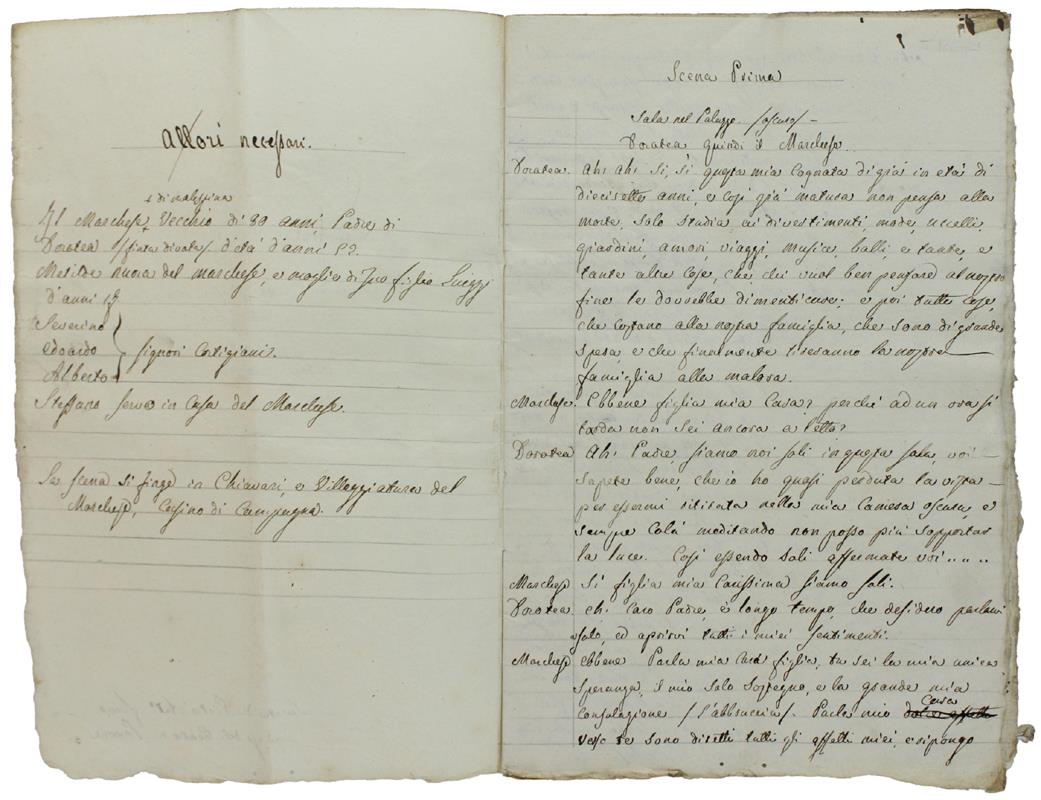 Attori necessari.
di malespina
Il Marchese Vecchio di 89 anni, Padre di
Doratea /finta divota/ d'età d'anni 52.
Metilde nuora del marchese, e moglie di suo figlio Luiggi
d'anni 17
Severino
Edoardo
Alberto
Signori Cortigiani.
Steffano servo in Casa del Marchese.
La scena si finge in Chiavari, e Villeggiatura del
Marchese, Casino di Campagna.
Scena Prima
Sala nel Palazzo /oscuro/ —
Doratea quindi il Marchese
Doratea Ah! Ah! Si, si questa mia Cognata di già in età di
diecisette anni, e così già matura non pensa alla
morte, solo studia, ai divertimenti, mode, uccelli,
giardini, amori, viaggi, musica, balli, e tante, e
tante altre cose, che chi vuol ben pensare al nostro
fine le dovrebbe dimenticare; e poi tutte cose,
che costano alla nostra famiglia, che sono di grande
spesa, e che finalmente tireranno la nostra
famiglia alla malora.
Marchese. Ebbene figlia mia Cara? perchè ad un ora sì
tarda non sei ancora a letto?
Doratea Ah! Padre, siamo noi soli in questa sala, voi —
sapete bene, che io ho quasi perduta la vista —
per essermi ritirata nella mia camera oscura, e
sempre colà meditando non posso più sopportar
la luce. Così essendo soli affermate voi....
Marchese Si figlia mia Carissima siamo soli.
Doratea eh! Caro Padre, è longo tempo, che desidero parlarvi
solo, ed aprirvi tutti i miei sentimenti.
Marchese ebbene Parla mia figlia, tu sei la mia unica
speranza, il mio solo sostegno, e la grande mia
Consolazione /l'abbraccia/. Parla mio Cara
verso te sono diretti tutti gli affetti miei, e ripongo